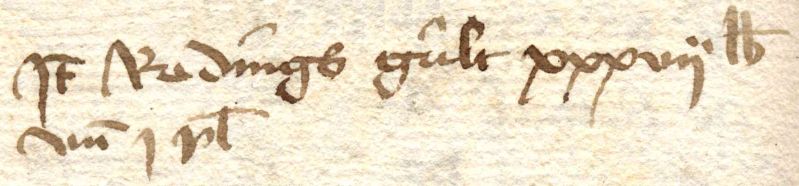 It Redings gult xxxvij lb
vm̄ j pl